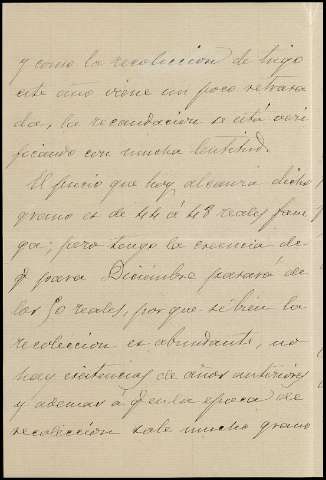 y como la recolección de trigo
este año viene un poco retrasa
da, la recaudación se está veri
ficando con mucha lentitud.
El precio que hoy alcanza dicho
grano es de 44 á 48 reales fane
ga; pero tengo la creencia de
q para Diciembre pasará de
los 50 reales, por que si bien la
recolección es abundante, no
hay existencias de años anteriores
y ademas á q en la epoca de
recolección sale mucho grano